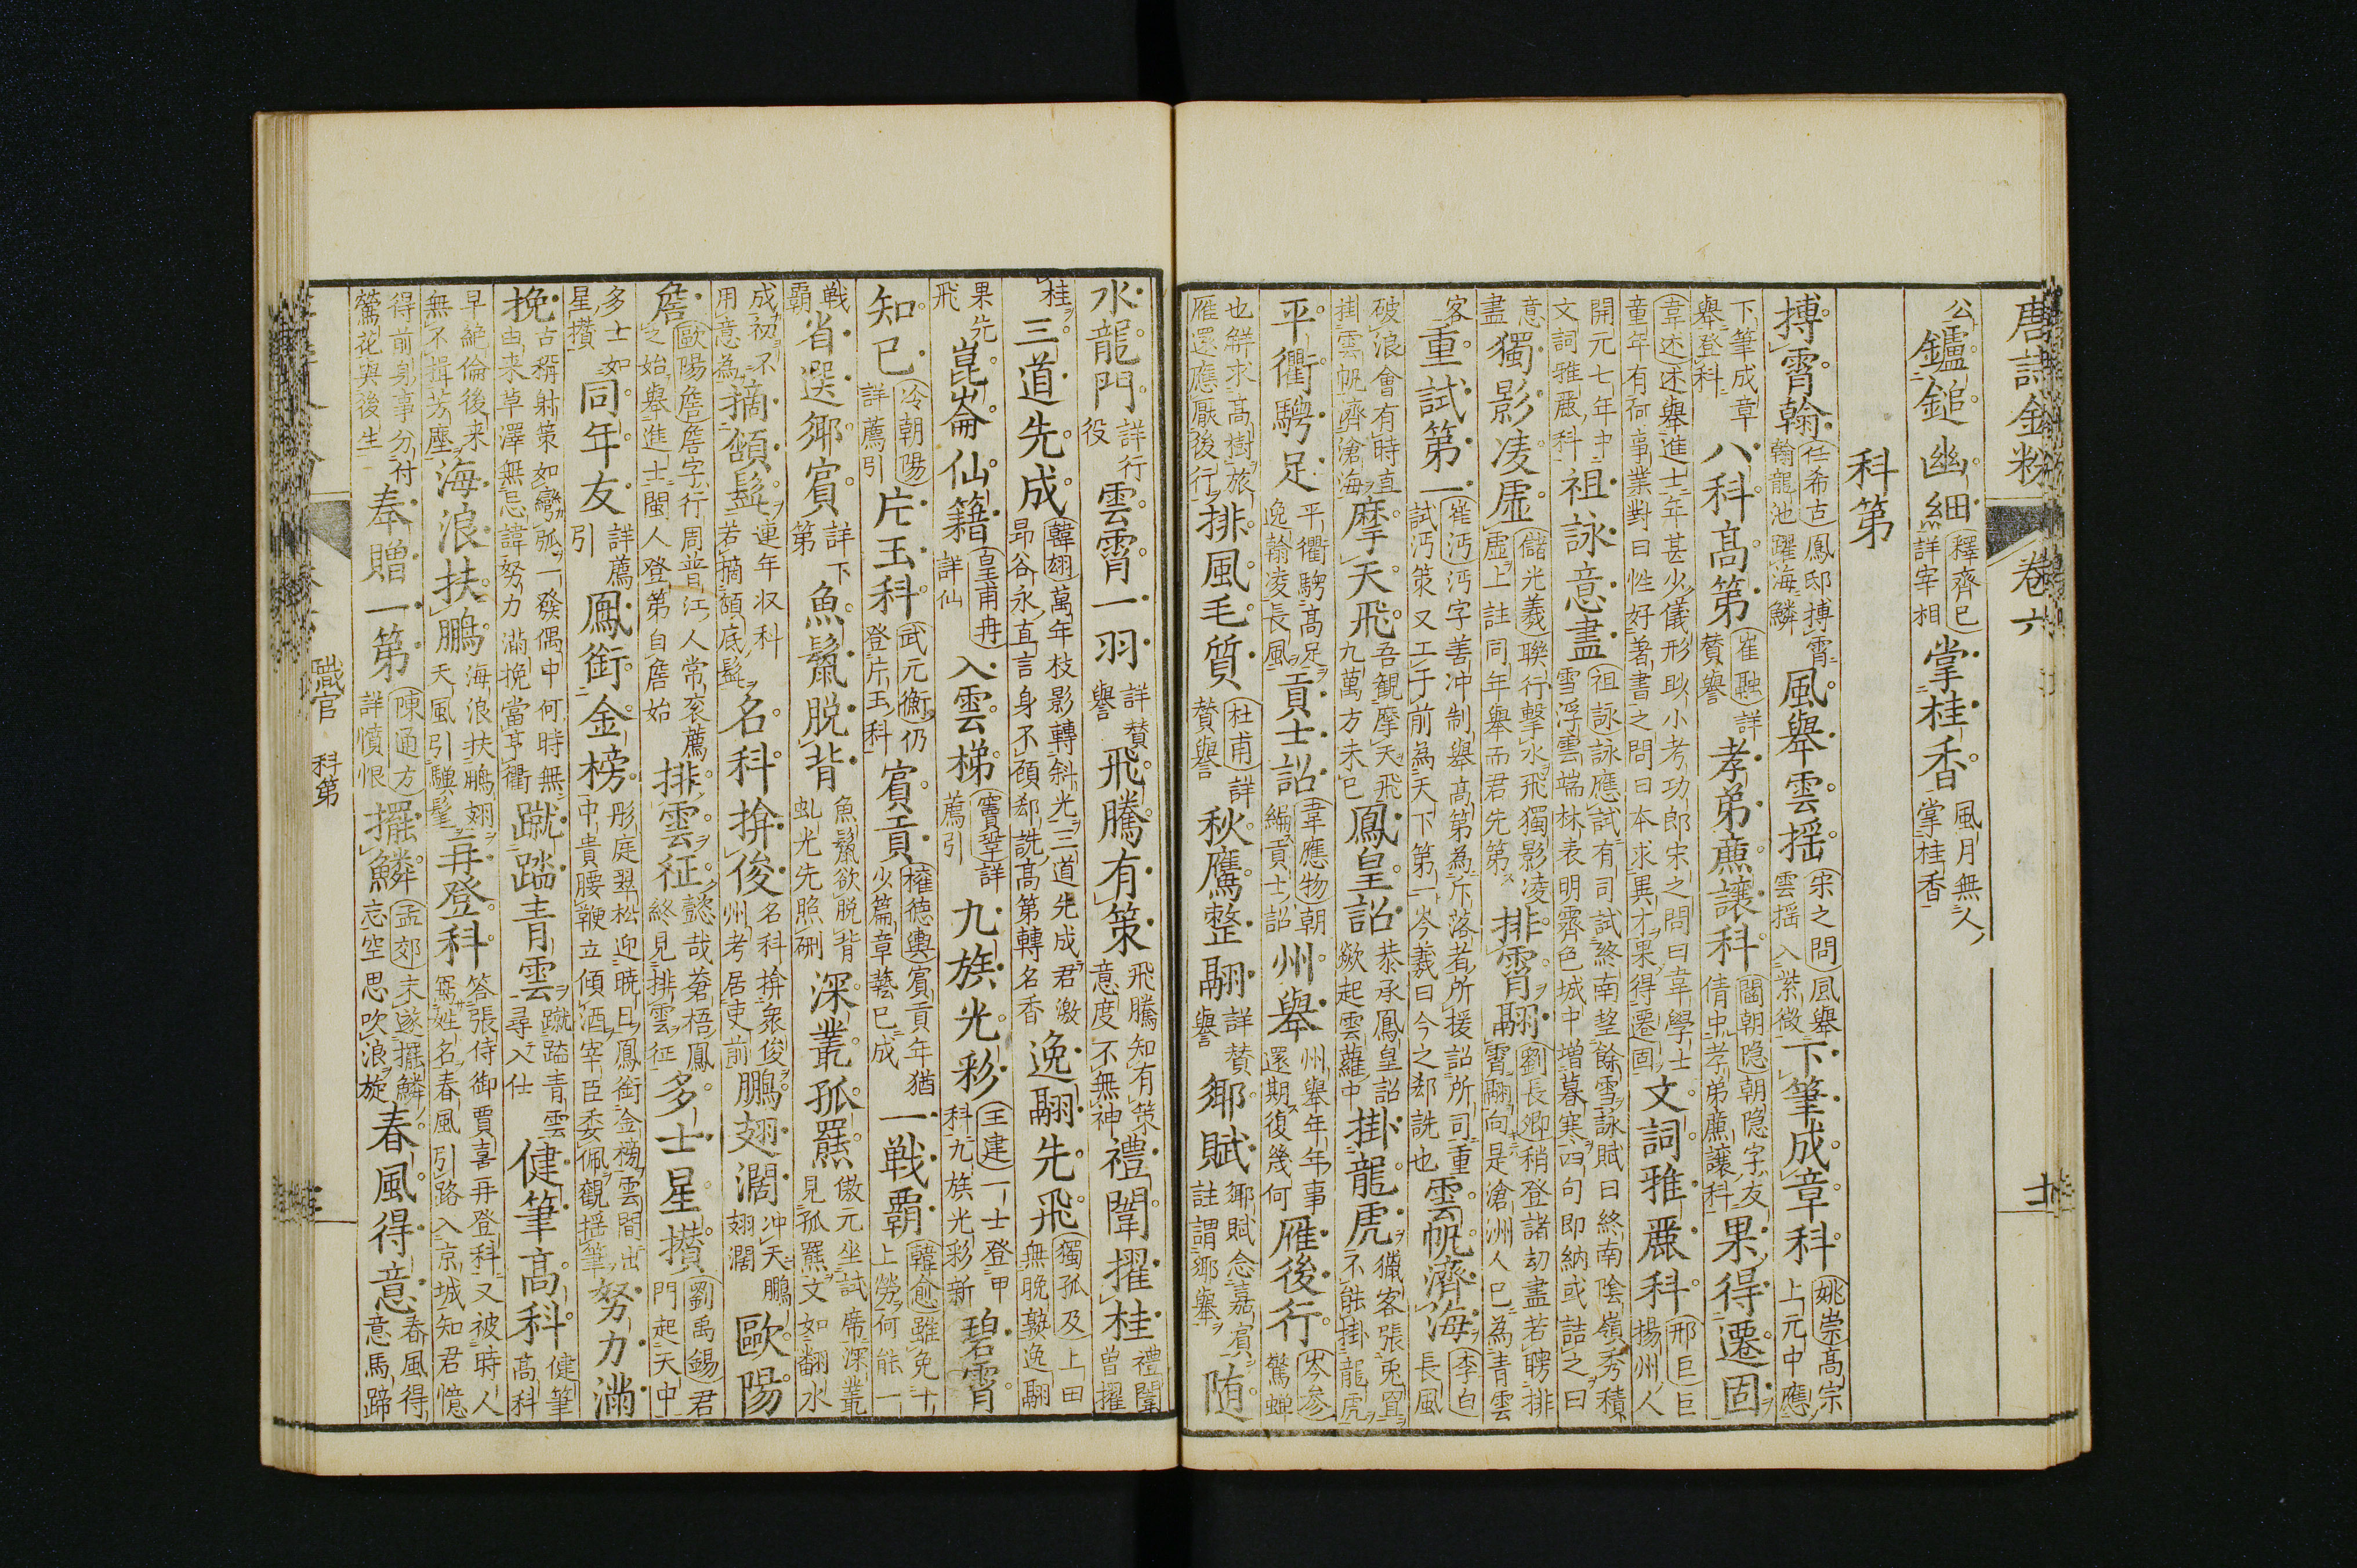 唐詩金粉 卷六 十一
公 鑪鎚幽細 釋齊已 詳宰相 掌桂香 風月無人掌桂香
科第
搏霄翰 任希古 鳳邸搏霄翰龍池躍海鱗 風舉雲摇 宋之問 風舉雲摇入紫微 下筆成章科 姚崇 高宗上元中應
下筆成章舉登科 八科高第 崔融 詳贊譽 孝弟廉讓科 閻朝隐 朝隐字友倩中孝弟廉讓科 果得遷固
韋述 述舉進士年甚少儀形眇小考功郎宋之問曰韋學士童年有何事業對曰性好著書之問曰本求異才果得遷固 文詞雅麗科 邢巨 巨揚州人
開元七年中文詞雅麗科 祖詠意盡 祖詠 詠應試有司試終南望餘雪詠賦曰終南陰嶺秀積雪浮雲端林表明霽色城中増暮寒四句即納或詰之曰
意盡 獨影凌虚 儲光羲 聯行擊水飛獨影凌虚上註同年舉而君先第 排霄翮 劉長卿 稍登諸刧盡若騁排霄翮向是滄洲人已為青雲
客 重試第一 崔沔 沔字善冲制舉高第為斥落者所援詔所司重試沔策又工于前為天下第一岑羲曰今之郄詵也 雲帆濟海 李白 長風
破浪會有時直掛雲帆濟滄海 摩天飛 吾観摩天飛九萬方未已 鳳皇詔 恭承鳳皇詔欻起雲蘿中 掛龍虎 獵客張兎罝不能掛龍虎
平衢騁足 平衢騁高足逸翰凌長風 貢士詔 韋應物 朝編貢士詔 州舉 州舉年年事還期復幾何 雁後行 岑参 驚蝉
也解求高樹旅雁還應厭後行 排風毛質 杜甫 詳贊譽 秋鷹整翮 詳贊譽 鄉賦 鄉賦念嘉賓註謂鄉舉 随
水龍門 詳行役 雲霄一羽 詳贊譽 飛騰有策 飛騰知有策意度不無神 禮闈擢桂 禮闈曽擢
桂 三道先成 韓翃 萬年枝影轉斜光三道先成君激昂谷永直言身不顧郄詵高第轉名香 逸翮先飛 獨孤及 上田無晚蓺逸翮
果先飛 崑崙仙籍 皇甫冉 詳仙 入雲梯 竇鞏 詳薦引 九族光彩 王建 一士登甲科九族光彩新 碧霄
知已 冷朝陽 詳薦引 片玉科 武元衡 仍登片玉科 賓貢 權德輿 賓貢年猶少篇章藝已成 一戰霸 韓愈 雖免十上勞何能一
戰霸 省選鄉賓 詳下第 魚鬣脱背 魚鬣欲脱背虬光先照硎 深叢孤羆 傲元坐試席深叢見孤羆文如翻水
成初不用意為 摘頷髭 連年収科若摘頷底髭 名科揜俊 名科揜衆俊州考居吏前 鵬翅濶 冲天鵬翅濶 歐陽
詹 歐陽詹 詹字行周晋江人常衮薦之始舉進士閩人登第自詹始 排雲征 懿哉蒼梧鳳終見排雲征 多士星攅 劉禹錫 君門起天中
多士如星攅 同年友 詳薦引 鳳銜金榜 彤庭翠松迎暁日鳳銜金榜雲間出中貴腰鞭立傾酒宰臣委佩觀揺筆 努力滿
挽 古稱射策如彎弧一發偶中何時無由来草澤無忌諱努力滿挽當亨衢 蹴踏青雲 蹴踏青雲尋入仕 健筆高科 健筆高科
早絶倫後来無不揖芳塵 海浪扶鵬 海浪扶鵬翅天風引驥髦 再登科 答張侍御賈喜再登科 又被時人寫姓名春風引路入京城知君憶
得前身事分付鶯花與後生 奉贈一第 陳通方 詳憤恨 擺鱗 孟郊 末遂擺鱗志空思吹浪旋 春風得意 春風得意馬蹄
職官 科第